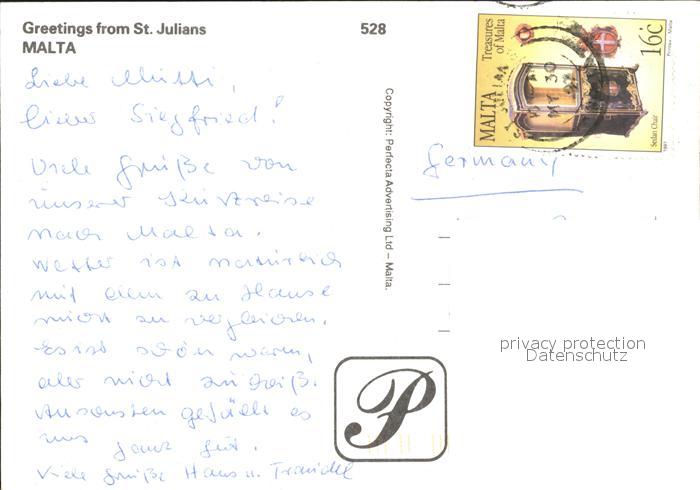 Greetings from St. Julians
MALTA
528
Liebe Mutti,
lieber Siegfried!
Viele Grüße von
unserer Kurzreise
nach Malta.
Wetter ist natürlich
mit dem zu Hause
nicht zu vergleichen.
Es ist schön warm,
aber nicht zu heiß.
Ansonsten gefällt es
uns ganz gut.
Viele Grüße Hans u. Traudel
Copyright: Perfecta Advertising Ltd – Malta.
P
MALTA
Treasures
of Malta
16c
Sedan Chair
1997
Printex - Malta
Germany
privacy protection
Datenschutz